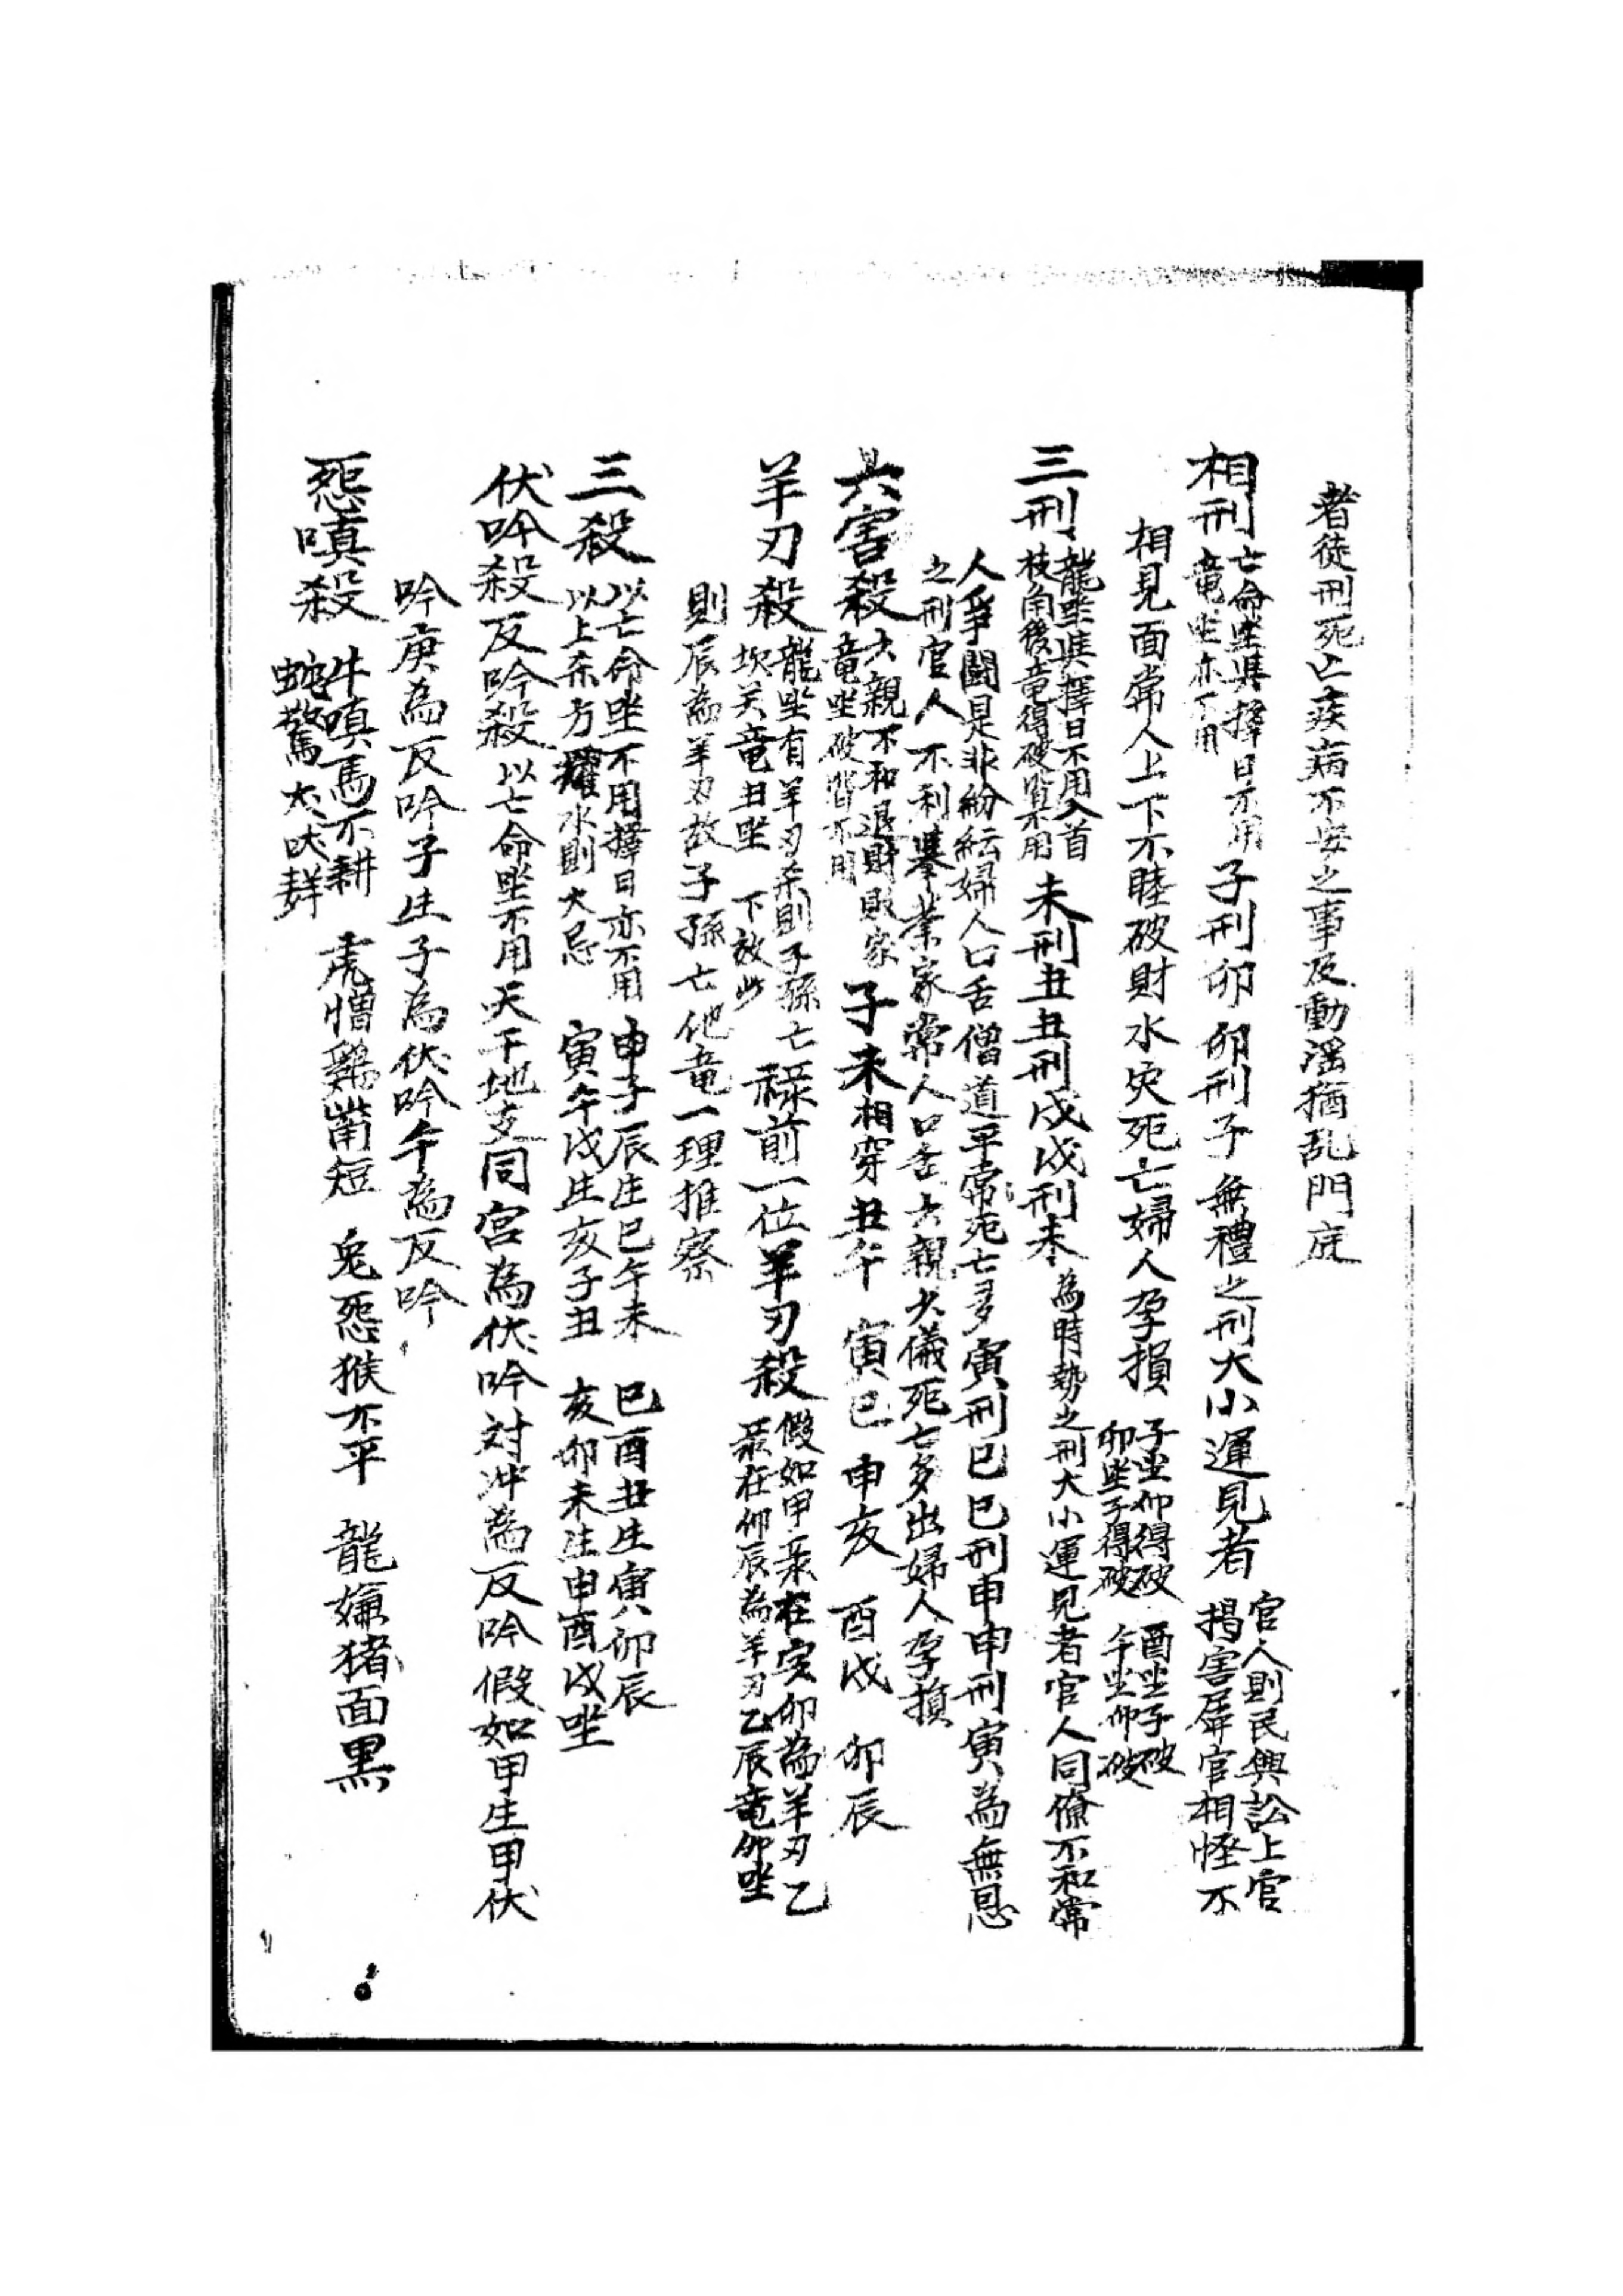 者徒刑死亡疾病不安之事及動滛猶乱門庭
相刑
亡命坐與擇日不用
竜坐亦不用
子刑卯 卯刑子 無禮之刑大小運見者
官人則民興訟上官
揭害屏官相怪不
相見面常人上下不睦破財水灾死亡婦人孕損
子坐卯得破 酉坐子破
卯坐子得破 午坐卯破
三刑
龍坐與擇日不用入首
枝角後竜得破皆不用
未刑丑丑刑戌戌刑未為時勢之刑大小運見者官人同僚不和常
人爭鬪是非紛紜婦人口舌僧道平常死亡多寅刑巳巳刑申申刑寅為無恩
之刑官人不利擧業家常人口舌六親少儀死亡多出婦人孕損
六害殺
六親不和退財敗家
竜坐破皆不用
子未相穿 丑午 寅巳 申亥 酉戌 卯辰
羊刃殺
龍坐有羊刃杀則子孫亡
坎关竜丑坐 下放此
禄前一位羊刃殺
假如甲彔在寅卯為羊刃乙
彔在卯辰為羊刃乙辰竜卯坐
則辰為羊刃故子孫亡他竜一理推察
三殺
以亡命坐不用擇日亦不用
以上杀方水則大忌
申子辰生巳午未 巳酉丑生寅卯辰
寅午戌生亥子丑 亥卯未生申酉戌坐
伏吟殺反吟殺以亡命坐不用天干地支同宮為伏吟対冲為反吟假如甲生甲伏
吟庚為反吟子生子為伏吟午為反吟
怨嗔殺
牛嗔馬不耕
蛇驚犬吠群
虎憎鷄嘴短 兎怨猴不平 龍嫌猪面黑